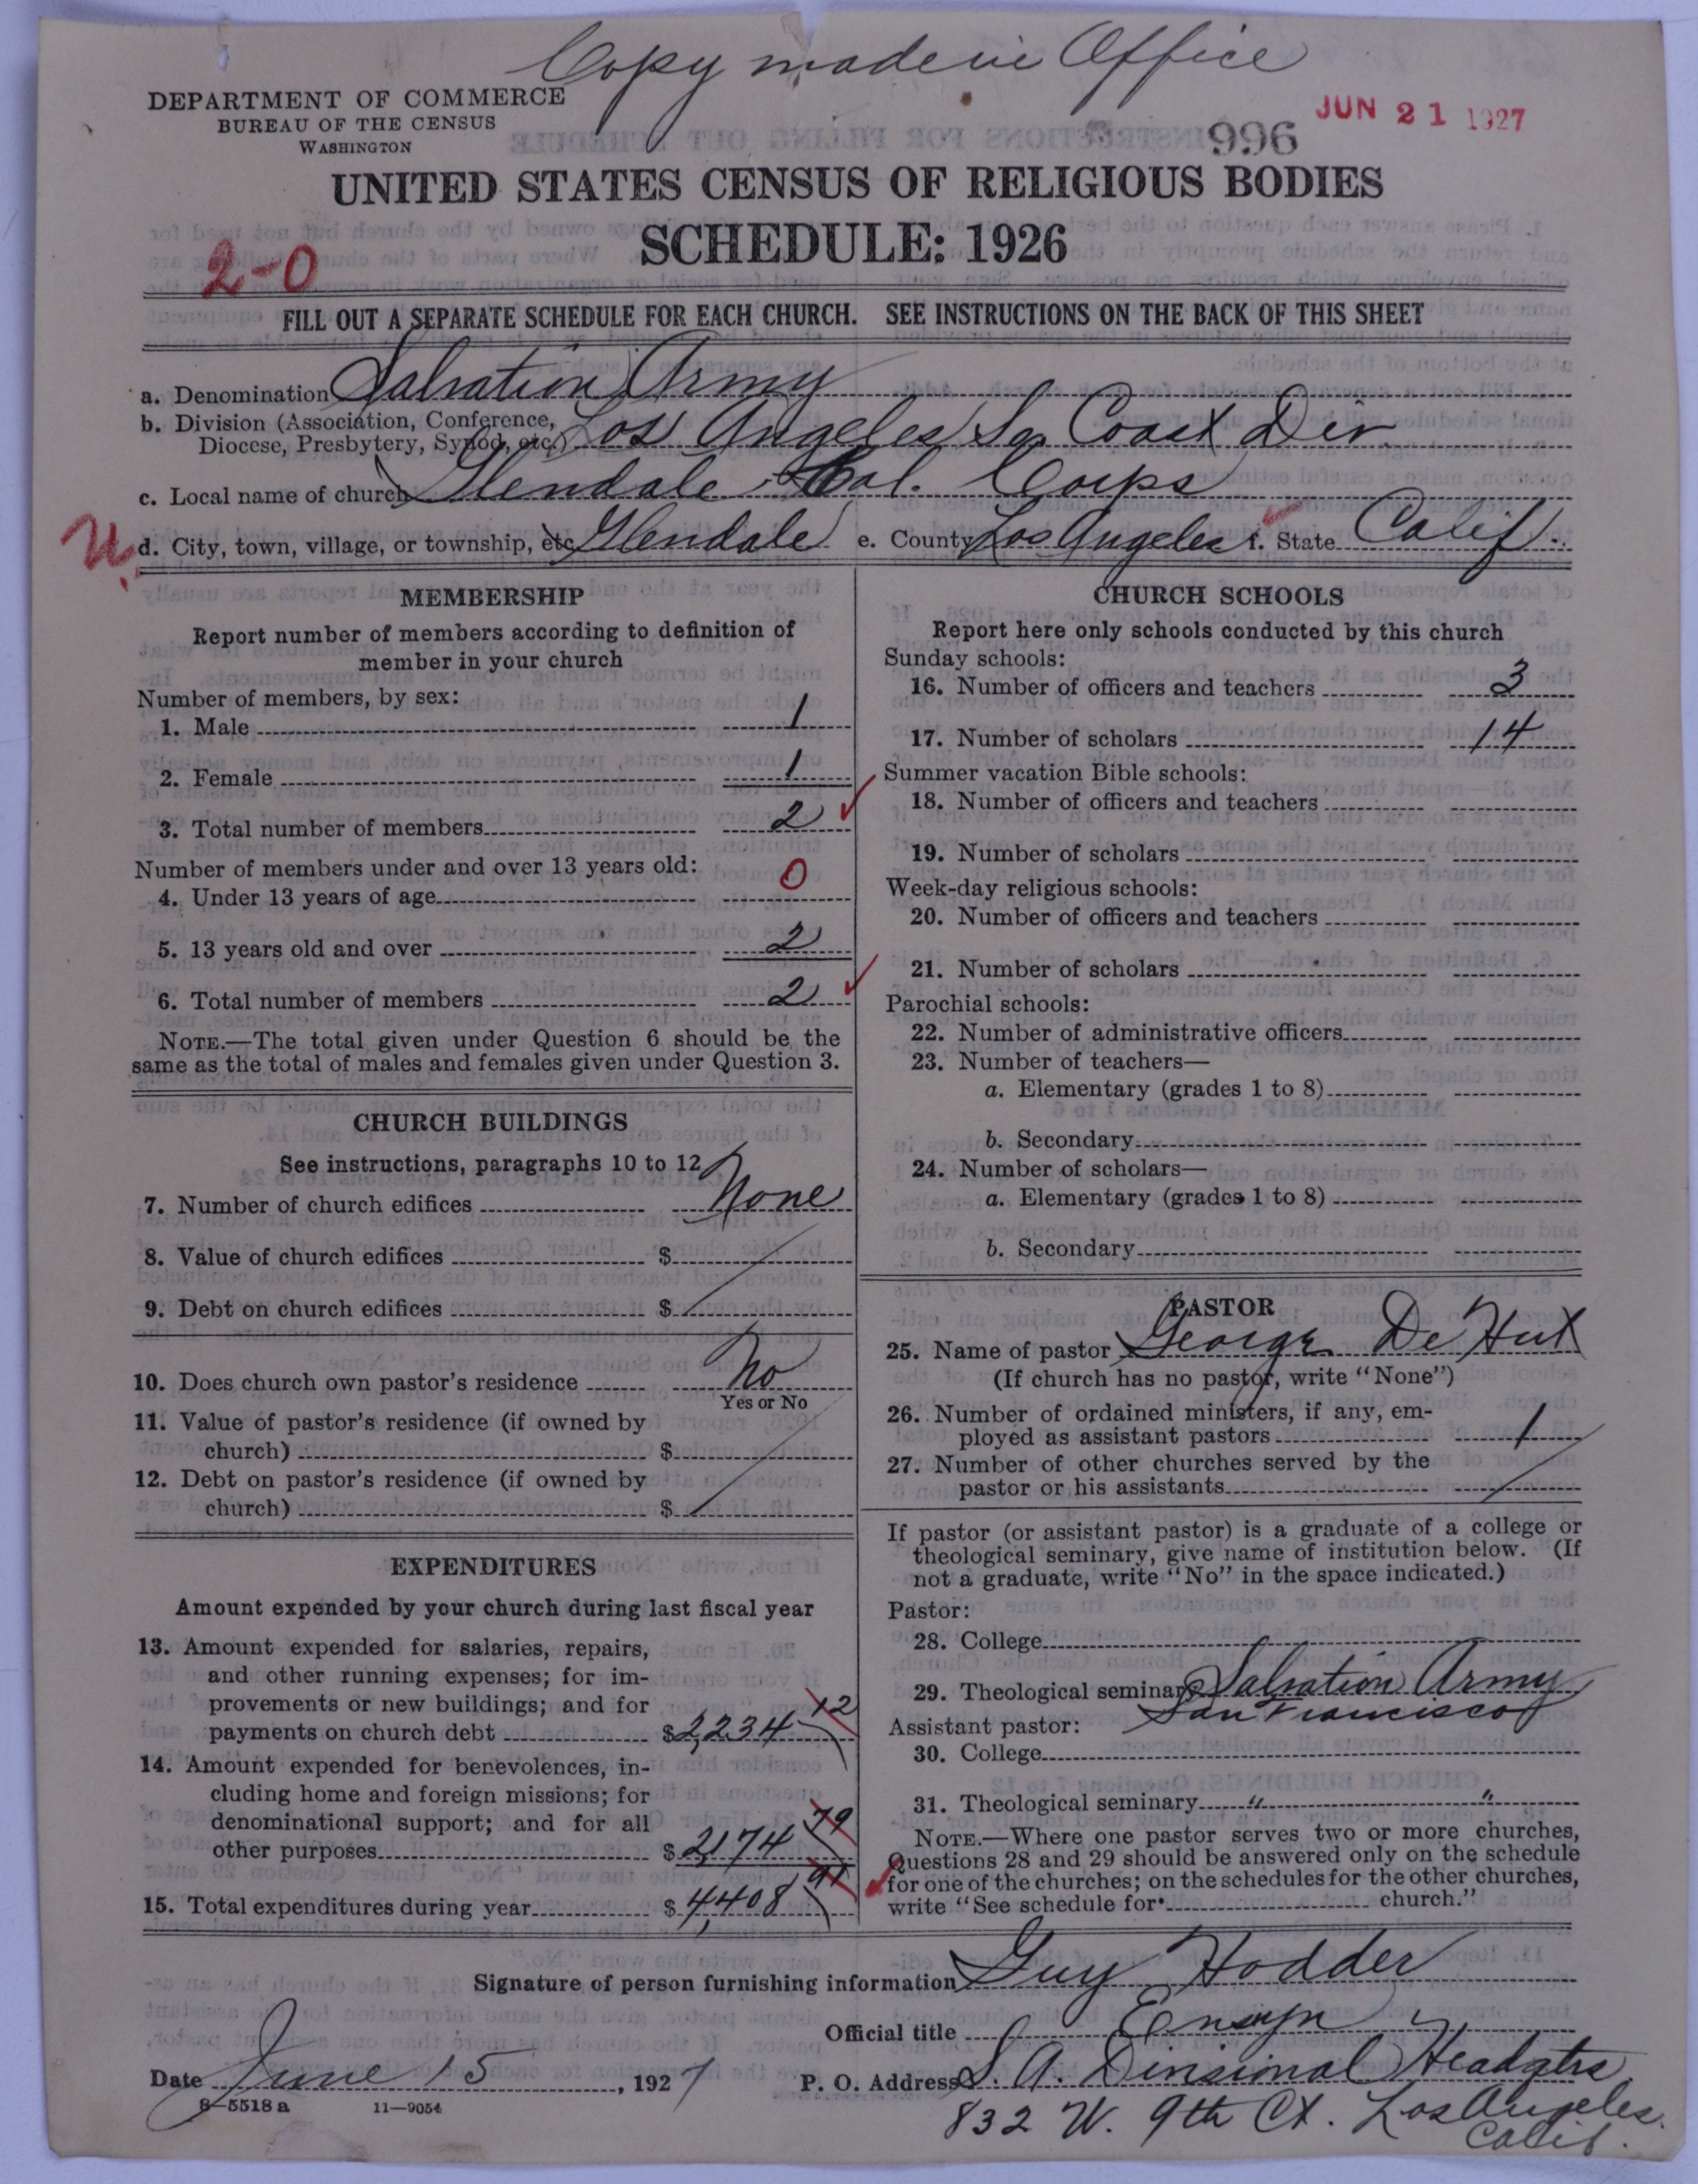 Copy made in Office
DEPARTMENT OF COMMERCE
BUREAU OF THE CENSUS
WASHINGTON
996
JUN 21 1927
UNITED STATES CENSUS OF RELIGIOUS BODIES
SCHEDULE: 1926
2-0
FILL OUT A SEPARATE SCHEDULE FOR EACH CHURCH. SEE INSTRUCTIONS ON THE BACK OF THIS SHEET
a. Denomination Salvation Army
b. Division (Association, Conference,
Diocese, Presbytery, Synod, etc.) Los Angeles So. Coast Div.
c. Local name of church Glendale Cal. Corps
U. d. City, town, village, or township, etc. Glendale e. County Los Angeles f. State Calif.
MEMBERSHIP
Report number of members according to definition of
member in your church
Number of members, by sex:
1. Male 1
2. Female 1
3. Total number of members 2
Number of members under and over 13 years old:
4. Under 13 years of age 0
5. 13 years old and over 2
6. Total number of members 2
NOTE.—The total given under Question 6 should be the
same as the total of males and females given under Question 3.
CHURCH BUILDINGS
See instructions, paragraphs 10 to 12
7. Number of church edifices None
8. Value of church edifices $
9. Debt on church edifices $
10. Does church own pastor's residence No
Yes or No
11. Value of pastor's residence (if owned by
church) $
12. Debt on pastor's residence (if owned by
church) $
EXPENDITURES
Amount expended by your church during last fiscal year
13. Amount expended for salaries, repairs,
and other running expenses; for im-
provements or new buildings; and for
payments on church debt $2,234 12
14. Amount expended for benevolences, in-
cluding home and foreign missions; for
denominational support; and for all
other purposes $2,174 79
15. Total expenditures during year $4,408 91
CHURCH SCHOOLS
Report here only schools conducted by this church
Sunday schools:
16. Number of officers and teachers 3
17. Number of scholars 14
Summer vacation Bible schools:
18. Number of officers and teachers
19. Number of scholars
Week-day religious schools:
20. Number of officers and teachers
21. Number of scholars
Parochial schools:
22. Number of administrative officers
23. Number of teachers—
a. Elementary (grades 1 to 8)
b. Secondary
24. Number of scholars—
a. Elementary (grades 1 to 8)
b. Secondary
PASTOR
25. Name of pastor George De Hut
(If church has no pastor, write "None")
26. Number of ordained ministers, if any, em-
ployed as assistant pastors 1
27. Number of other churches served by the
pastor or his assistants
If pastor (or assistant pastor) is a graduate of a college or
theological seminary, give name of institution below. (If
not a graduate, write "No" in the space indicated.)
Pastor:
28. College
29. Theological seminary Salvation Army
San Francisco
Assistant pastor:
30. College
31. Theological seminary " "
NOTE.—Where one pastor serves two or more churches,
Questions 28 and 29 should be answered only on the schedule
for one of the churches; on the schedules for the other churches,
write "See schedule for church."
Signature of person furnishing information Guy Hodder
Official title Ensign
Date June 15, 1927
P. O. Address S. A. Divisional Headqtrs.
832 W. 9th St. Los Angeles.
Calif.
8-5518a 11-9054